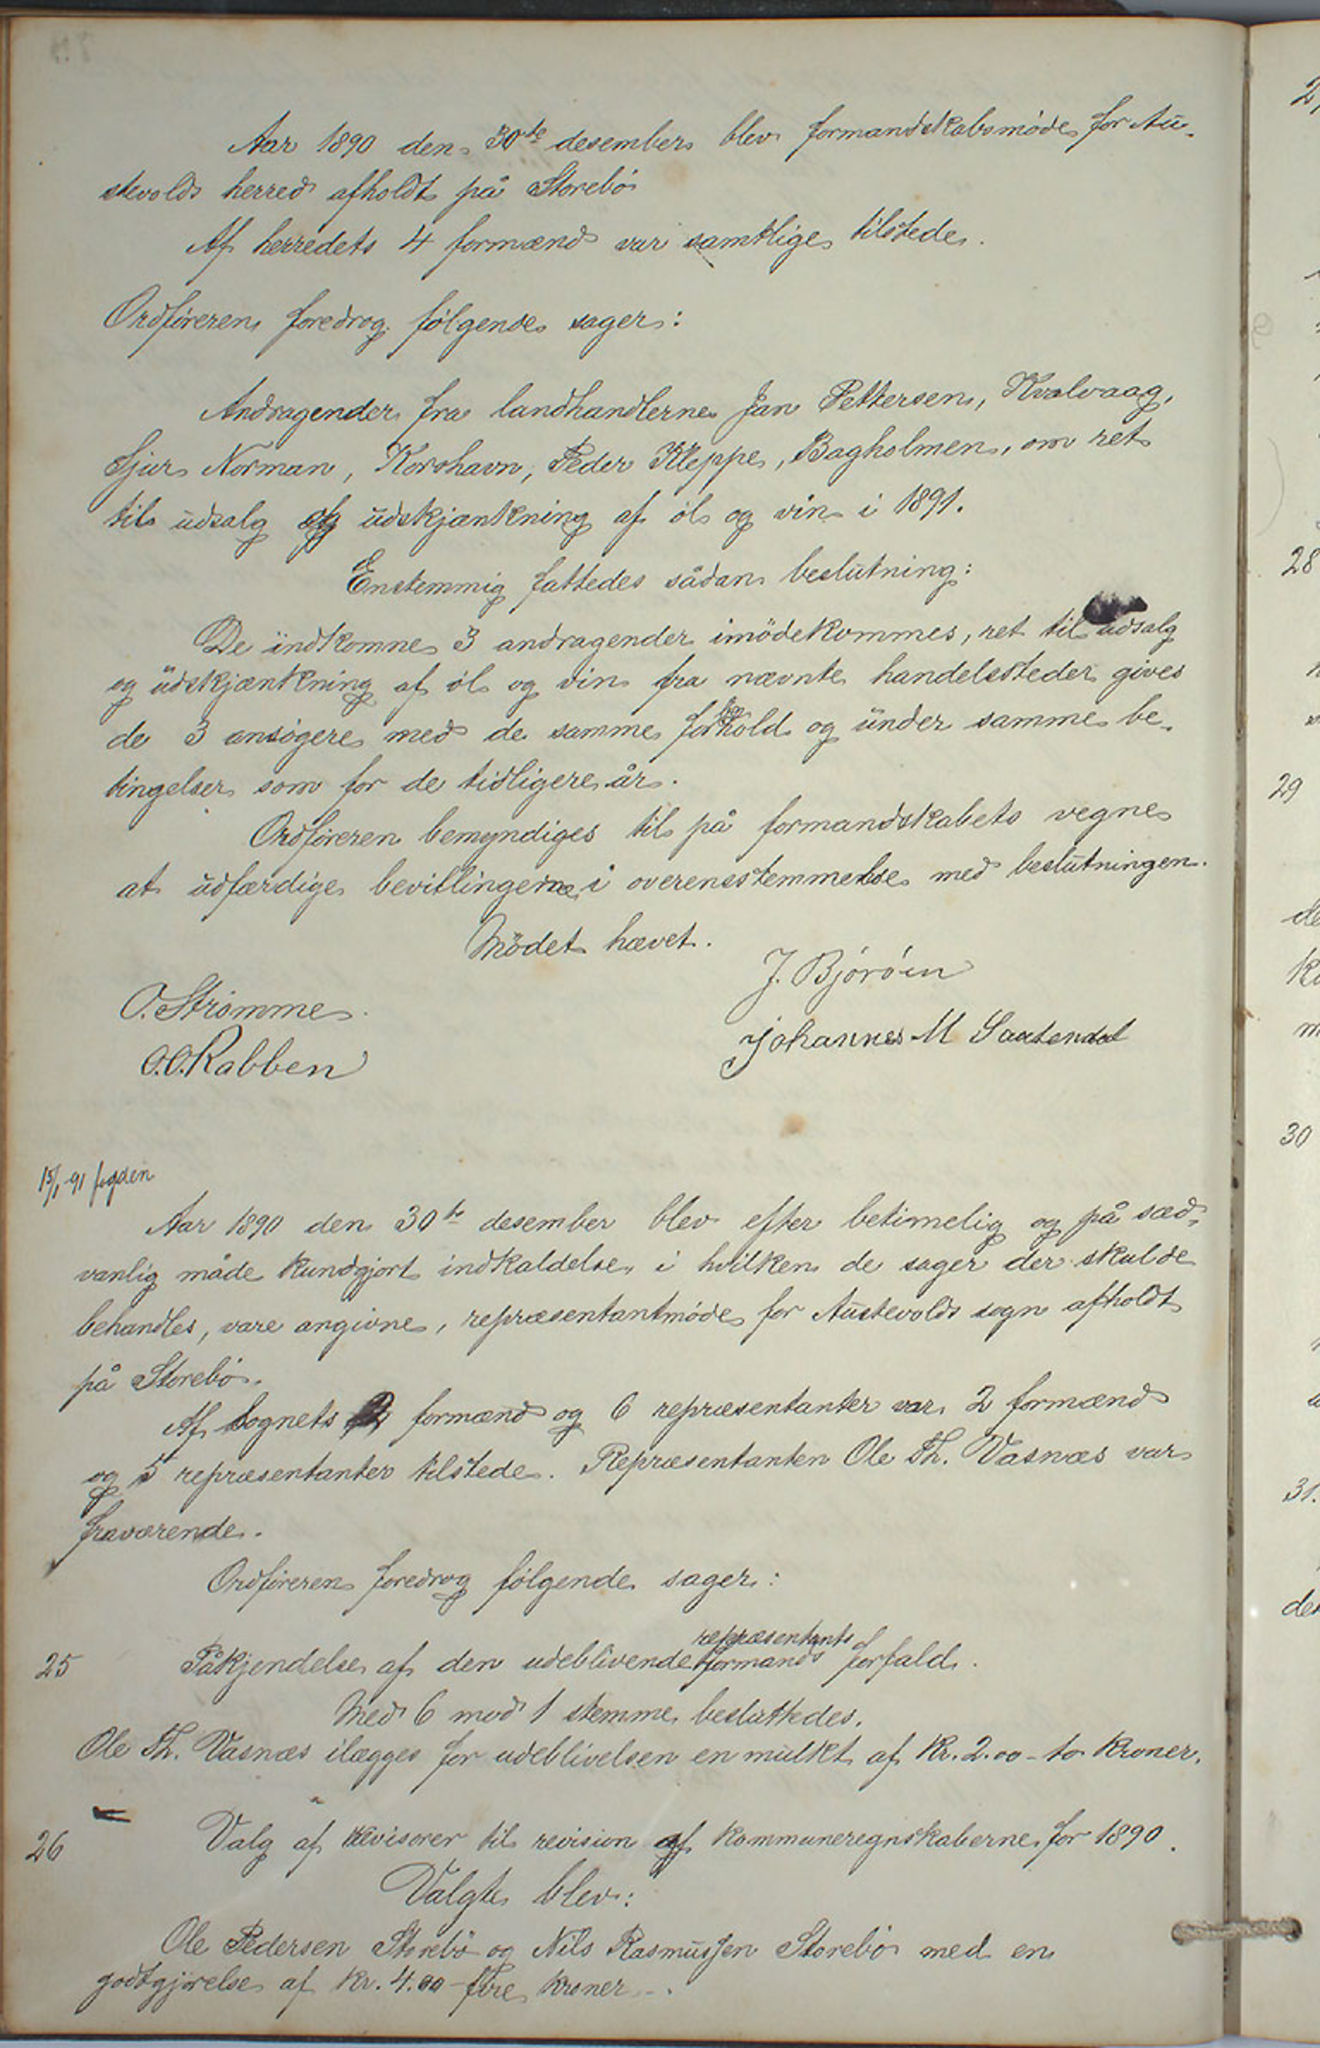 Aar 1890 den 30te desember blev formandskabsmøde for Au-
stevolds herred afholdt på Storebø
Af herredets 4 formænd var samtlige tilstede.
Ordføreren foredrog følgende sager:
Andragender fra landhandlerne Jan Pettersen, Kvalvaag,
Sjur Norman, Korshavn, Peder Kleppe, Bagholmen, om ret
til udsalg og udskjænkning af øl og vin i 1891.
Enstemmig fattedes sådan beslutning:
De indkomne 3 andragender imødekommes, ret til udsalg
og udskjænkning af øl og vin fra nævnte handelssteder gives
de 3 ansøgere med de samme forhold og under samme be-
tingelser som for de tidligere år.
Ordføreren bemyndiges til på formandskabets vegne
at udfærdige bevillingerne i overensstemmelse med beslutningen.
Mødet hævet.
J. Bjørøen
O. Strømme
Johannes M Sautendal
O.O. Rabben
15/1-91 fogden
Aar 1890 den 30te desember blev efter betimelig og på sæd-
vanlig måde kundgjort indkaldelse, i hvilken de sager der skulde
behandles, vare angivne, repræsentantmøde for Austevolds sogn afholdt
på Storebø.
Af sognets 2 formænd og 6 repræsentanter var 2 formænd
og 5 repræsentanter tilstede. Repræsentanten Ole Th. Vasnæs var
fraværende.
Ordføreren foredrog følgende sager:
repræsentants
25 Påkjendelse af den udeblivende formands forfald.
Med 6 mod 1 stemme besluttedes.
Ole Th. Vasnæs ilægges for udeblivelsen en mulkt af kr. 2.00 - to kroner.
26 Valg af revisorer til revision af kommuneregnskaberne for 1890.
Valgte blev:
Ole Pedersen Storebø og Nils Rasmussen Storebø med en
godtgjørelse af kr. 4.00 - fire kroner.
28
29
de
30
31.